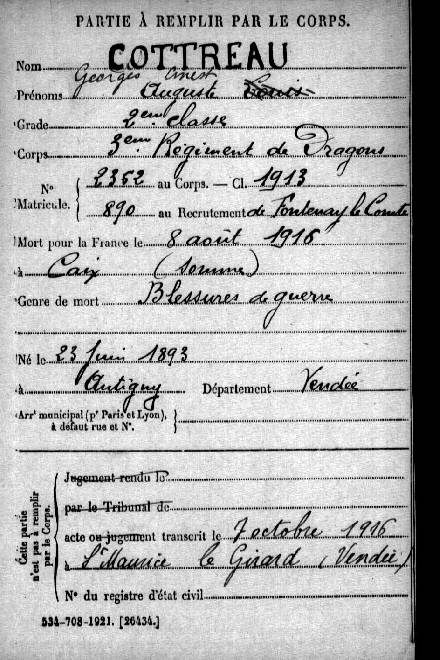 PARTIE À REMPLIR PAR LE CORPS.
Nom COTTREAU
Georges Anest
Prénoms Auguste Louis
Grade 2em classe
Corps 3em Régiment de Dragons
N° Matricule. { 2352 au Corps. — Cl. 1913
890 au Recrutement de Fontenay le Comte
Mort pour la France le 8 août 1916
à Caix (Somme)
Genre de mort Blessures de guerre
Né le 23 Juin 1893
à Antigny Département Vendée
Arrt municipal (pr Paris et Lyon), à défaut rue et N°. }
Cette partie n'est pas à remplir par le Corps. {
Jugement rendu le
par le Tribunal de
acte ou jugement transcrit le 7 octobre 1916
à St Maurice le Girard (Vendée)
N° du registre d'état civil
534-708-1921. [26434.]